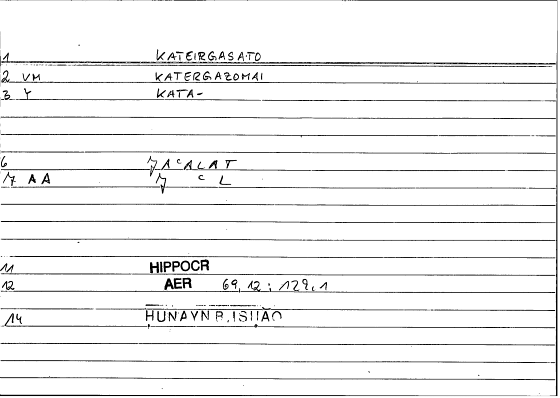 1 KATEIRGASATO
2 VM KATERGAZOMAI
3 Y KATA-
6 ACALAT
7 AA C L
11 HIPPOCR
12 AER 69,12 ; 129,1
14 ḤUNAYN B. ISḤĀQ